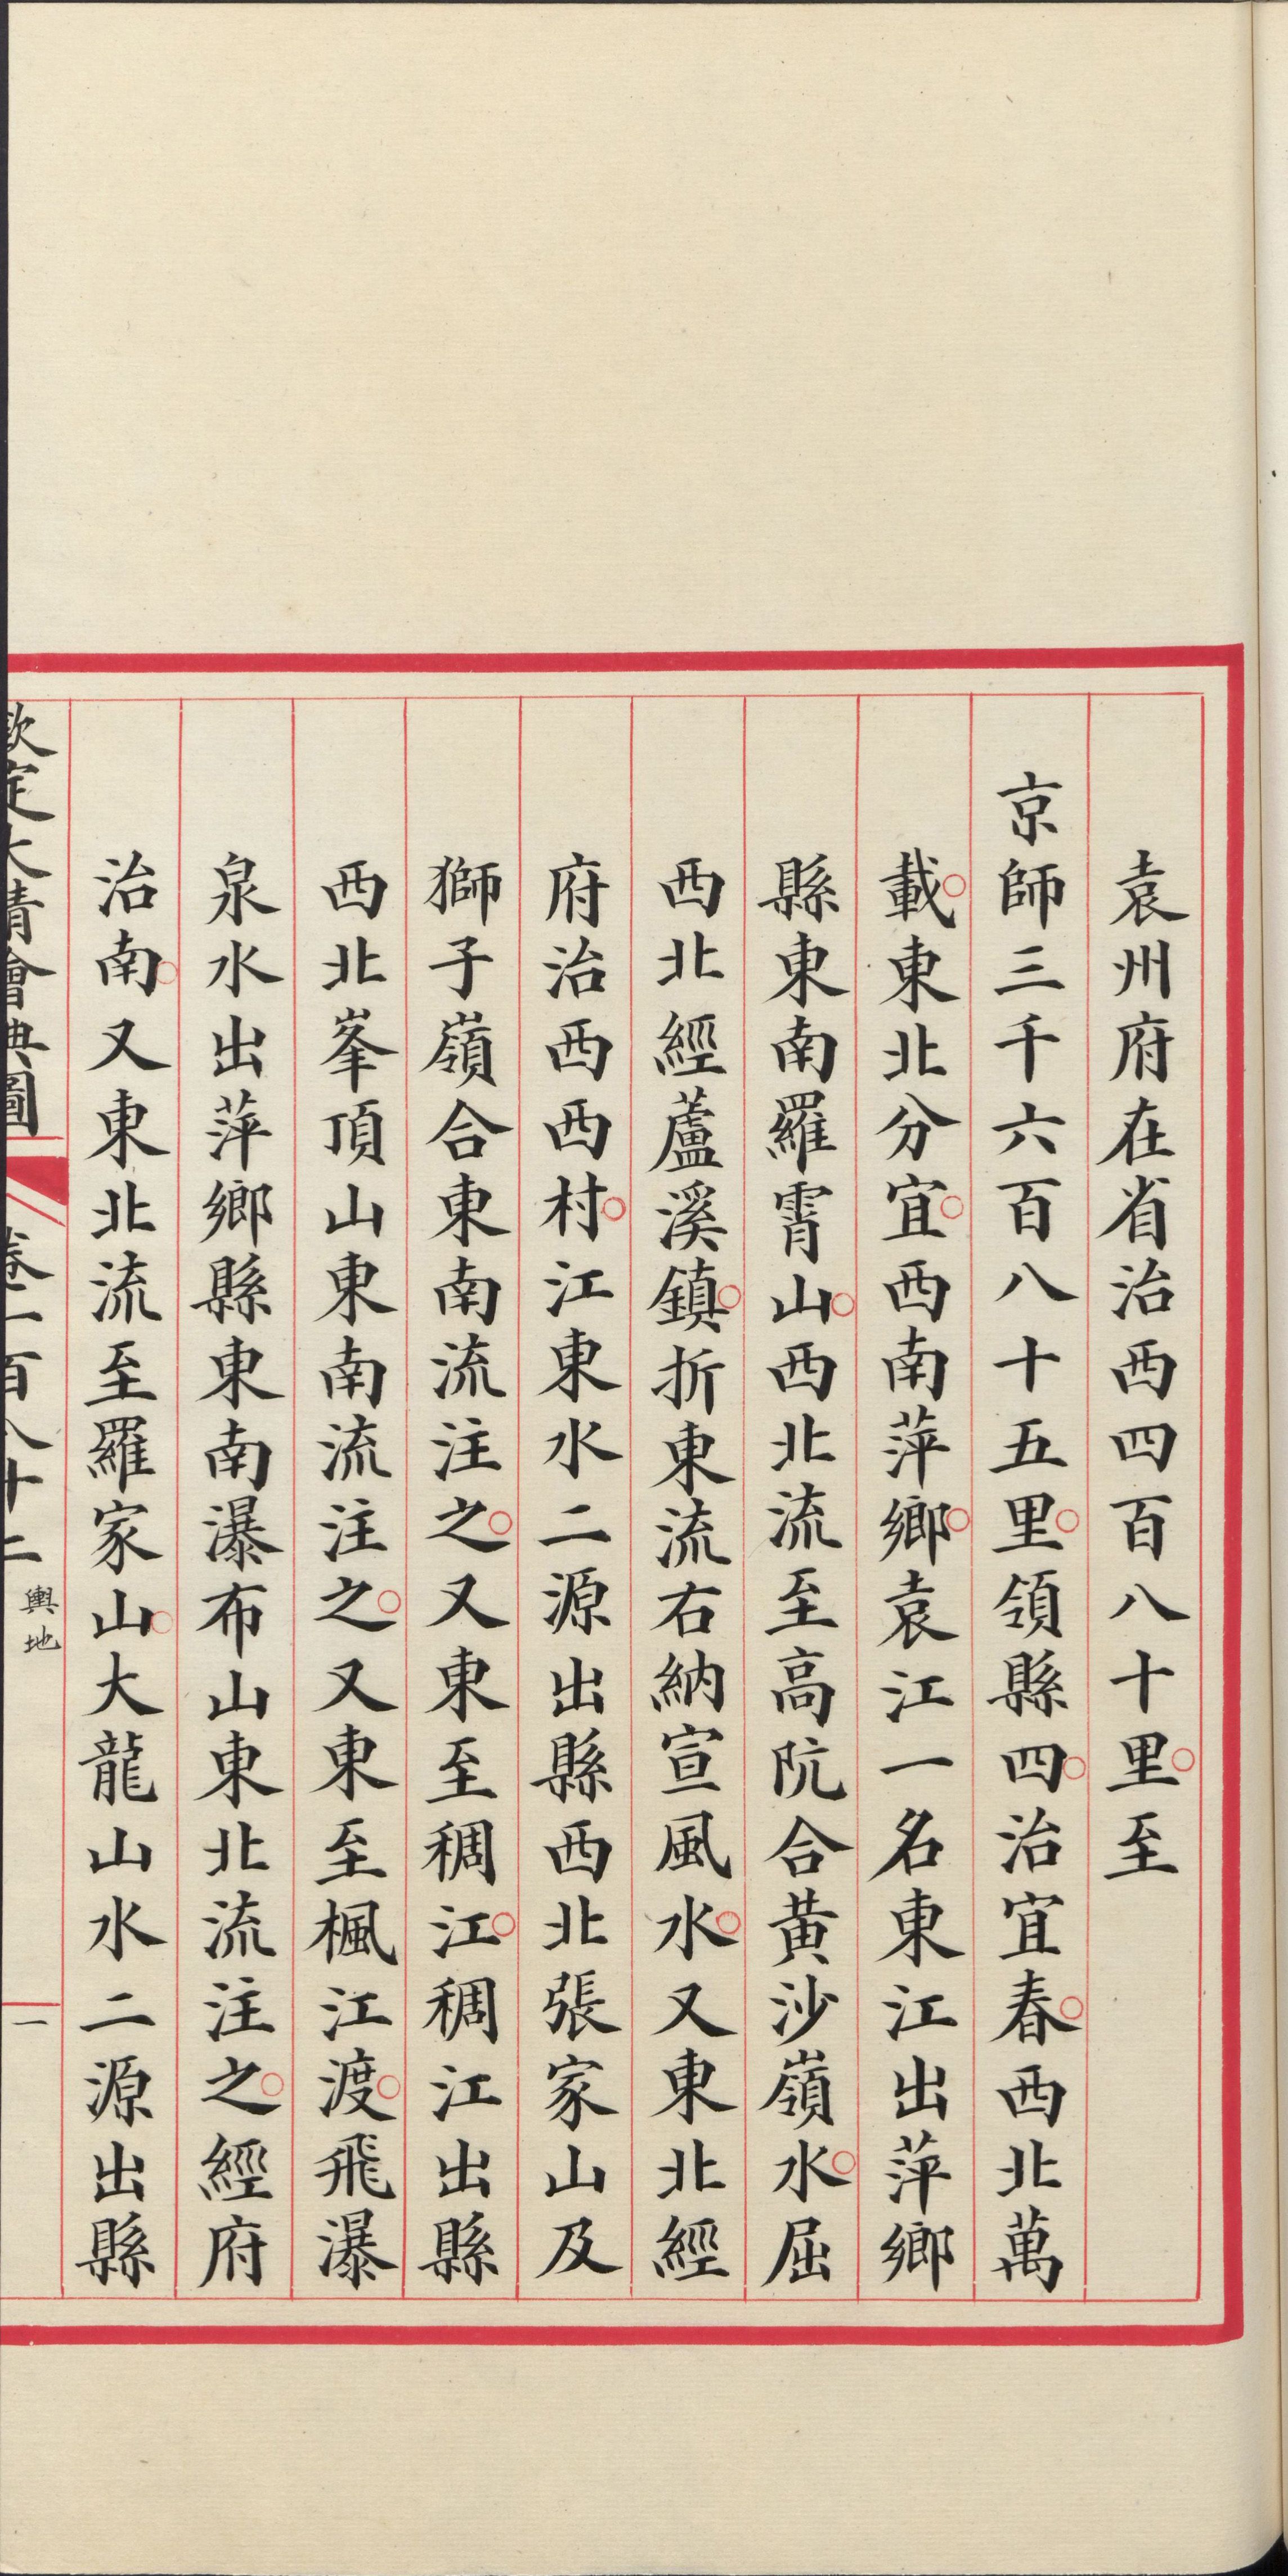 袁州府在省治西四百八十里。至
京師三千六百八十五里。領縣四。治宜春。西北萬
載。東北分宜。西南萍鄉。袁江一名東江出萍鄉
縣東南羅霄山。西北流至高阬合黃沙嶺水。屈
西北經蘆溪鎮。折東流右納宣風水。又東北經
府治西西村。江東水二源出縣西北張家山及
獅子嶺合東南流注之。又東至稠江。稠江出縣
西北峯頂山東南流注之。又東至楓江渡。飛瀑
泉水出萍鄉縣東南瀑布山東北流注之。經府
治南。又東北流至羅家山。大龍山水二源出縣
欽定大清會典圖
卷二百八十二
輿地
一